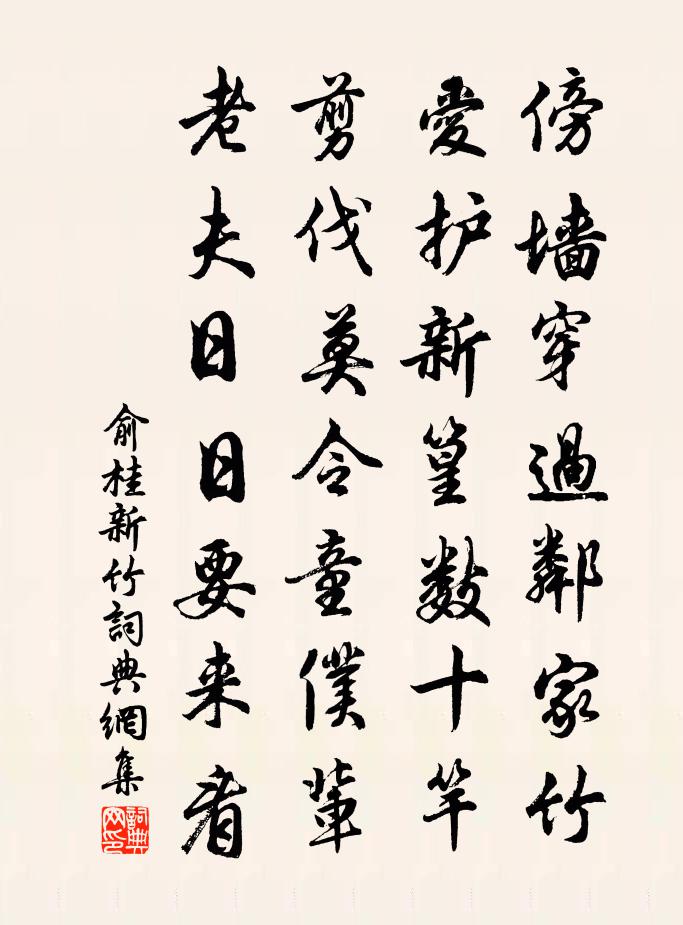 傍墙穿過鄰家竹
愛护新篁数十竿
剪伐莫令童僕輩
老夫日日要来看
俞桂新竹詞典網集
詞典网印